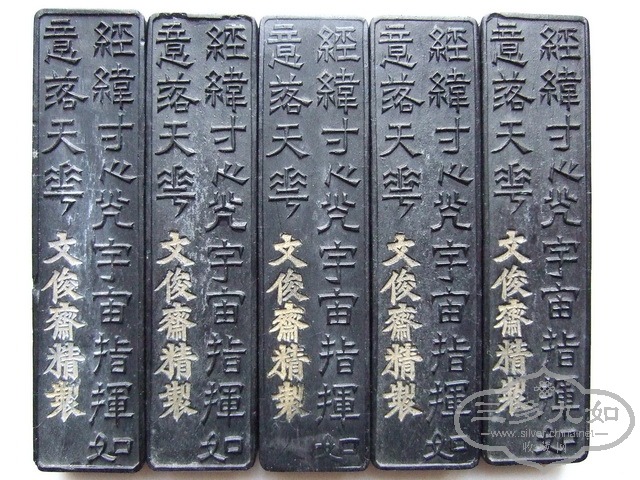 經緯寸心宇宙指揮如
意落天華
文俊齋精製
經緯寸心宇宙指揮如
意落天華
文俊齋精製
經緯寸心宇宙指揮如
意落天華
文俊齋精製
經緯寸心宇宙指揮如
意落天華
文俊齋精製
經緯寸心宇宙指揮
意落天華
文俊齋精製
www.silver.china.net